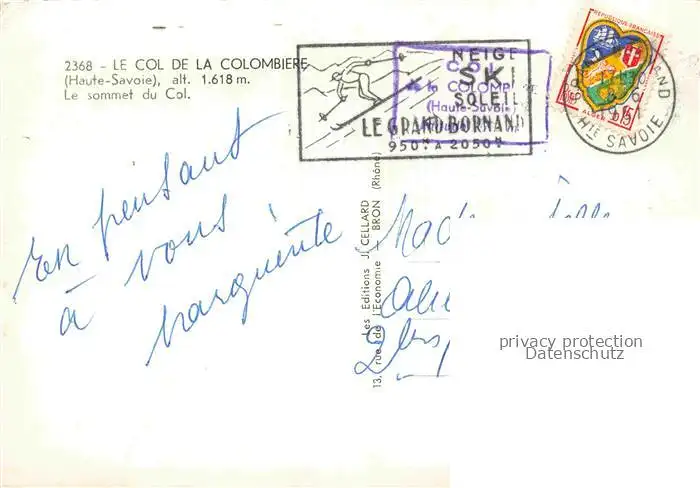 2368 - LE COL DE LA COLOMBIERE
(Haute-Savoie), alt. 1.618 m.
Le sommet du Col.
NEIGE
SKI
SOLEIL
LE GRAND BORNAND
950ᵐ A 2050ᵐ
COL
de la COLOMB
(Haute-Savoie
REPUBLIQUE FRANÇAISE
ALGER 0,15
HTE SAVOIE
En pensant
à vous
Marguerite
Les Editions J. CELLARD
13, rue de l'Economie - BRON (Rhône)
Mad
privacy protection
Datenschutz